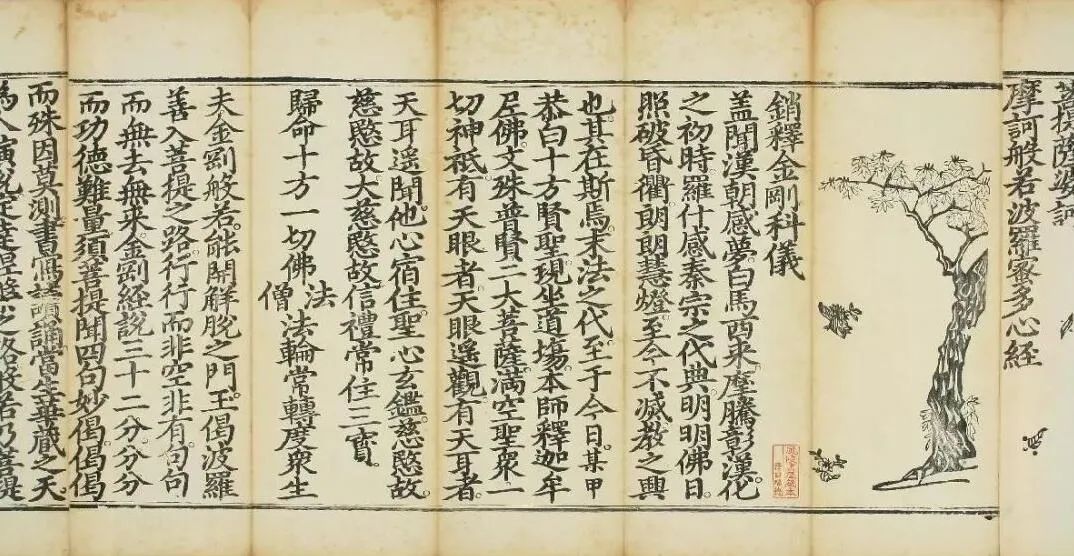 菩提薩婆訶
摩訶般若波羅蜜多心經
銷釋金剛科儀
蓋聞漢朝感夢。白馬西来。摩騰彰漢化
之初。時羅什感秦宗之代典。明明佛日。
照破昏衢。朗朗慧燈。至今不滅。教之興
也。其在斯焉。末法之代。至于今日。某甲
恭白十方賢聖。現坐道塲。本師釋迦牟
尼佛。文殊普賢二大菩薩。满空聖衆。一
切神祇。有天眼者。天眼遥觀。有天耳者。
天耳遥聞。他心宿住。聖心玄鑑。慈愍故。
慈愍故。大慈愍故。信禮常住三寳。
歸命十方一切佛法僧法輪常轉度衆生
夫金剛般若。能開解脫之門。王偈波羅。
善入菩提之路。行行而非空非有。句句
而無去無来。金剛經說三十二分。分分
而功德難量。須菩提聞四句妙偈。偈偈
而殊因莫測。書寫讀誦。當生華藏之天。
為人演說。定達涅槃之路。般若乃菩提